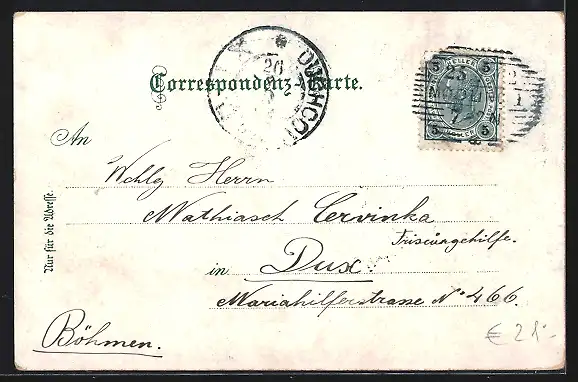 Correspondenz-Karte.
An
Wohlg Herrn
Mathiasch Cervinka
Friseurgehilfe.
in Dux
Mariahilferstrasse No 466.
Böhmen.
Nur für die Adresse.
5 5
5 5
€ 28.-